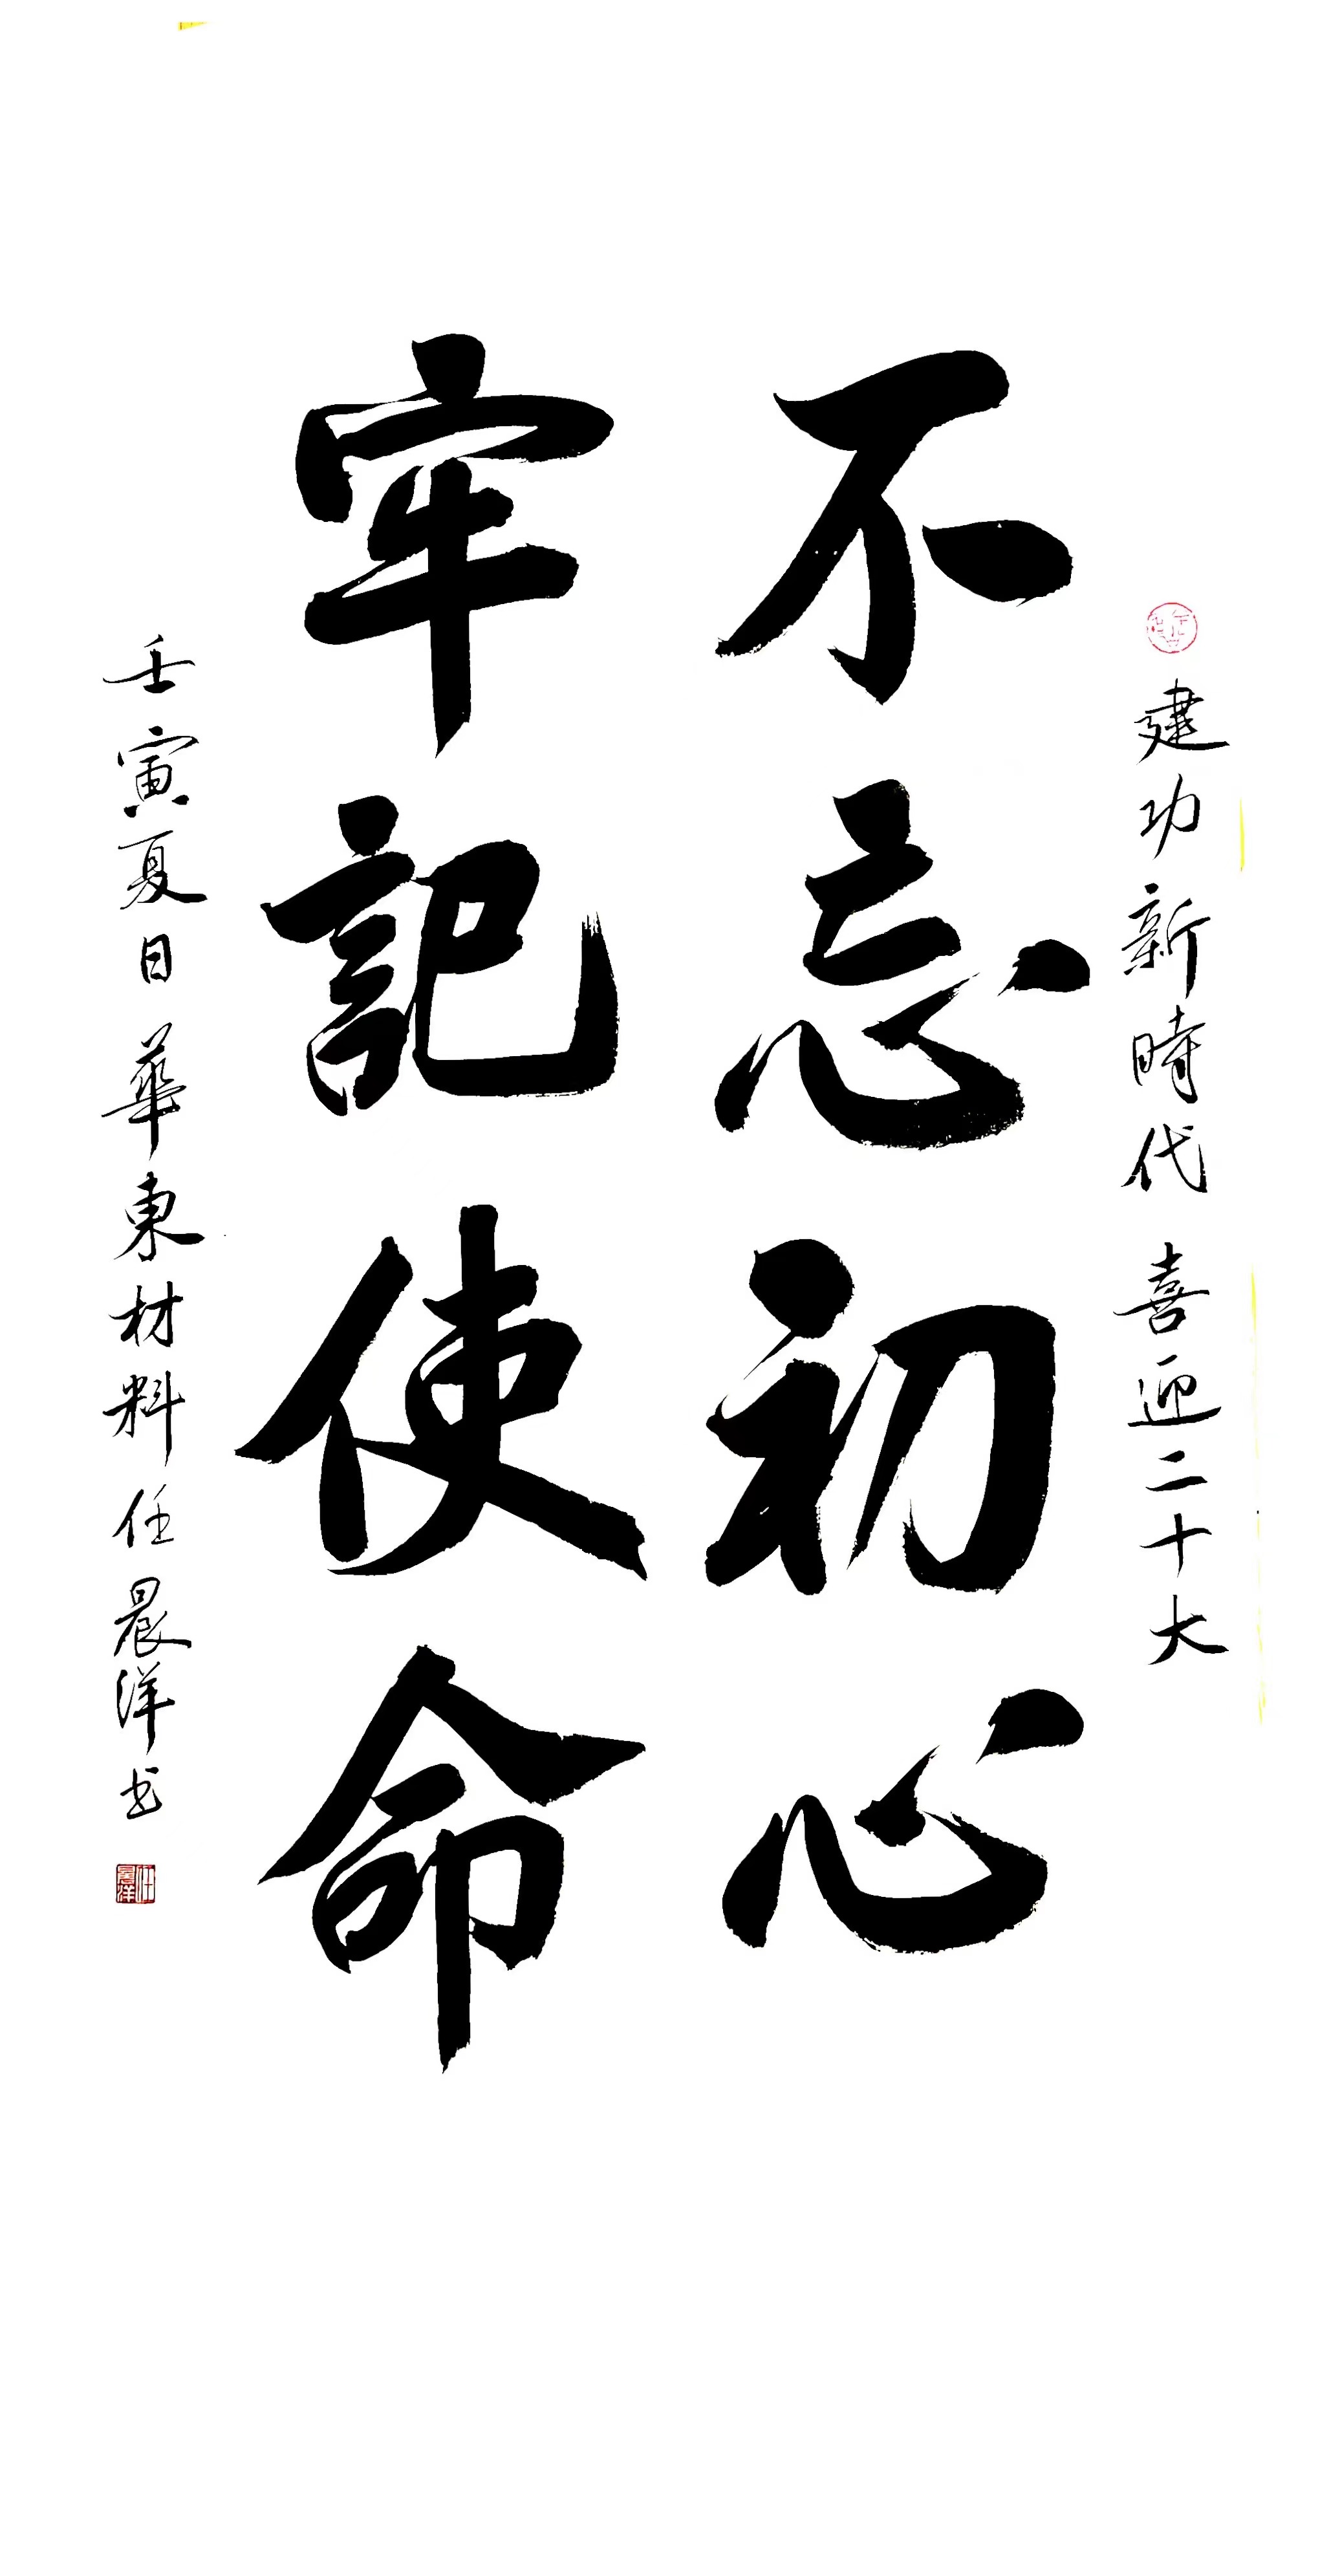 建功新時代 喜迎二十大
不忘初心
牢記使命
壬寅夏日華東材料任晨洋书
任晨洋